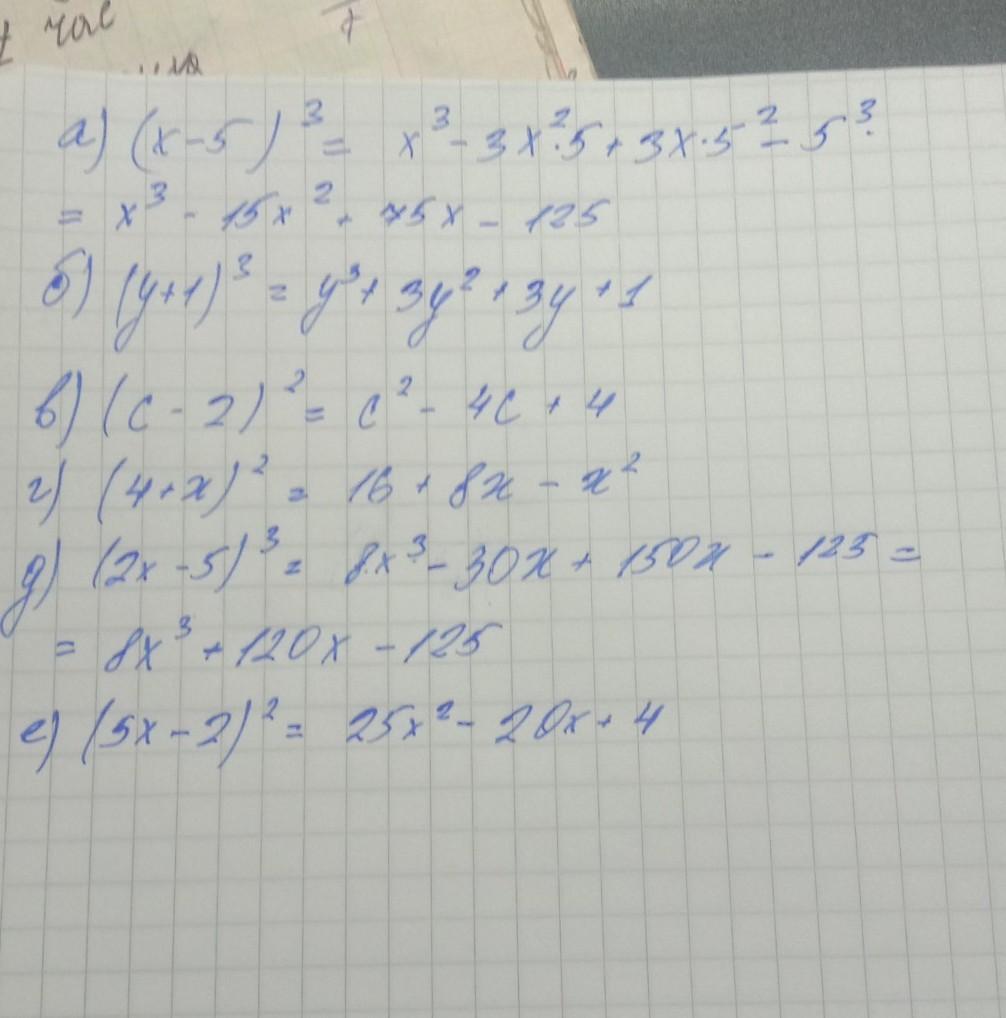 час
а) (x-5)³ = x³ - 3x²·5 + 3x·5² - 5³
= x³ - 15x² + 75x - 125
б) (y+1)³ = y³ + 3y² + 3y + 1
в) (c - 2)² = c² - 4c + 4
г) (4+x)² = 16 + 8x - x²
д) (2x-5)³ = 8x³ - 30x + 150x - 125 =
= 8x³ + 120x - 125
е) (5x-2)² = 25x² - 20x + 4